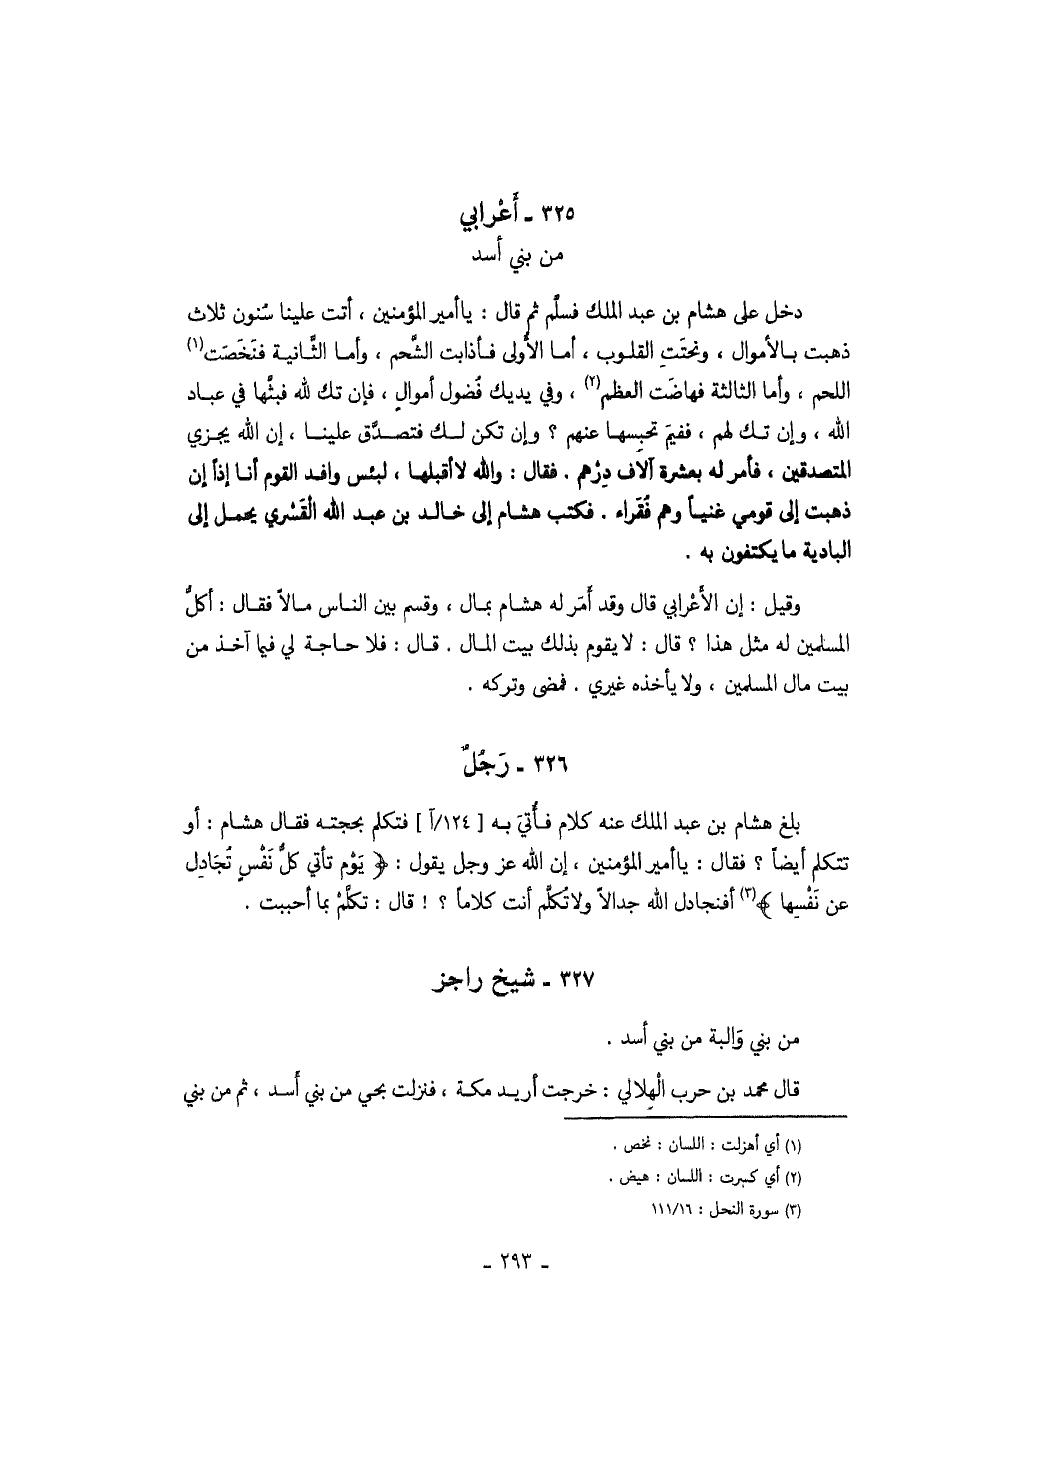 ٣٢٥ ـ أَعْرابي
من بني أسد
دخل على هشام بن عبد الملك فسلَّم ثم قال : ياأمير المؤمنين ، أتت علينا سُنون ثلاث
ذهبت بالأموال ، ونحتَتِ القلوب ، أما الأُولى فأذابت الشَّحم ، وأما الثَّانية فنَخَصَت(١)
اللحم ، وأما الثالثة فهاضَت العظم(٢) ، وفي يديك فُضول أموالٍ ، فإن تك لله فبثَّها في عباد
الله ، وإن تك لهم ، ففيمَ تحبِسها عنهم ؟ وإن تكن لك فتصدَّق علينا ، إن الله يجزي
المتصدقين ، فأمر له بعشرة آلاف دِرْهم . فقال : والله لاأقبلها ، لبئس وافد القوم أنا إذاً إن
ذهبت إلى قومي غنياً وهم فُقَراء . فكتب هشام إلى خالد بن عبد الله القَسْري يحمل إلى
البادية مايكتفون به .
وقيل : إن الأَعْرابي قال وقد أَمَر له هشام بمال ، وقسم بين الناس مالاً فقال : أكلُّ
المسلمين له مثل هذا ؟ قال : لايقوم بذلك بيت المال . قال : فلا حاجة لي فيما آخذ من
بيت مال المسلمين ، ولايأخذه غيري . فمضى وتركه .
٣٢٦ ـ رَجُلٌ
بلغ هشام بن عبد الملك عنه كلام فأُتيَ به [ ١٢٤/آ ] فتكلم بحجته فقال هشام : أو
تتكلم أيضاً ؟ فقال : ياأمير المؤمنين ، إن الله عز وجل يقول : ﴿ يَوْم تأتي كلُّ نَفْسٍ تُجَادِل
عن نَفْسِها ﴾(٣) أفنجادل الله جدالاً ولاتُكلَّم أنت كلاماً ؟ ! قال : تكلَّمْ بما أحببت .
٣٢٧ ـ شيخ راجز
من بني وَالبة من بني أسد .
قال محمد بن حرب الْهِلالي : خرجت أريد مكة ، فنزلت بحي من بني أَسد ، ثم من بني
(١) أي أهزلت : اللسان : نخص .
(٢) أي كسرت : اللسان : هيض .
(٣) سورة النحل : ١١١/١٦
ـ ٢٩٣ ـ